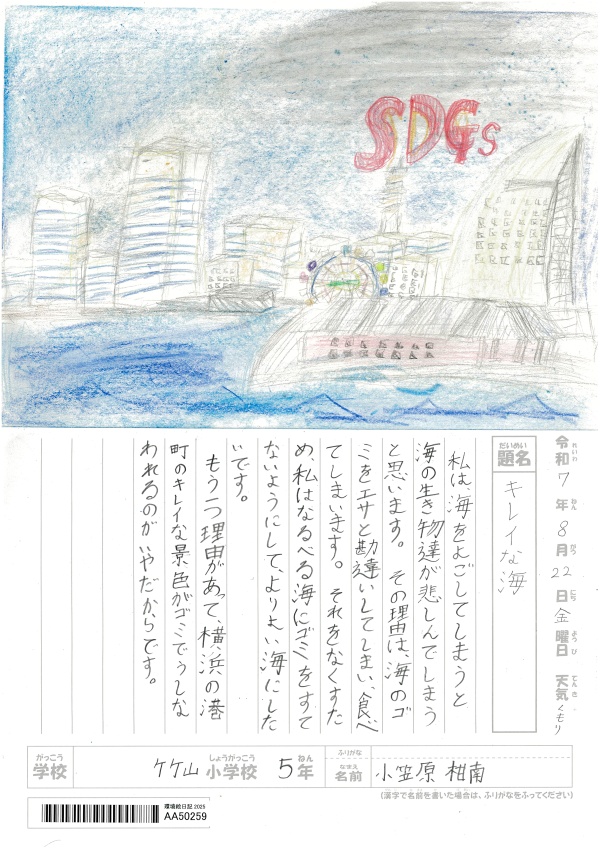 SDGs
令和7年8月22日金曜日 天気くもり
れいわ ねん がつ にち ようび てんき
だいめい
題名 キレイな海
私は、海をよごしてしまうと
海の生き物達が悲しんでしまう
と思います。その理由は、海のゴ
ミをエサと勘違いしてしまい、食べ
てしまいます。それをなくすた
め、私はなるべる海にゴミをすて
ないようにして、よりよい海にした
いです。
もう一つ理由があって、横浜の港
町のキレイな景色がゴミでうしな
われるのがいやだからです。
がっこう しょうがっこう ねん ふりがな
学校 ケケ山 小学校 5年
なまえ
名前 小笠原 柑南
(漢字で名前を書いた場合は、ふりがなをふってください)
環境絵日記 2025
AA50259